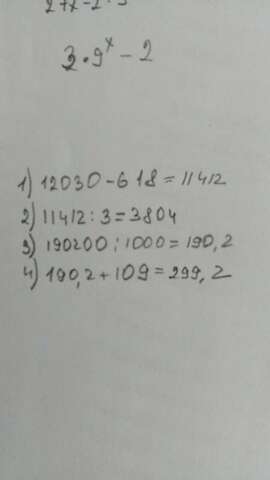 3 · 9ˣ - 2
1) 12030 - 618 = 11412
2) 11412 : 3 = 3804
3) 190200 : 1000 = 190,2
4) 190,2 + 109 = 299,2